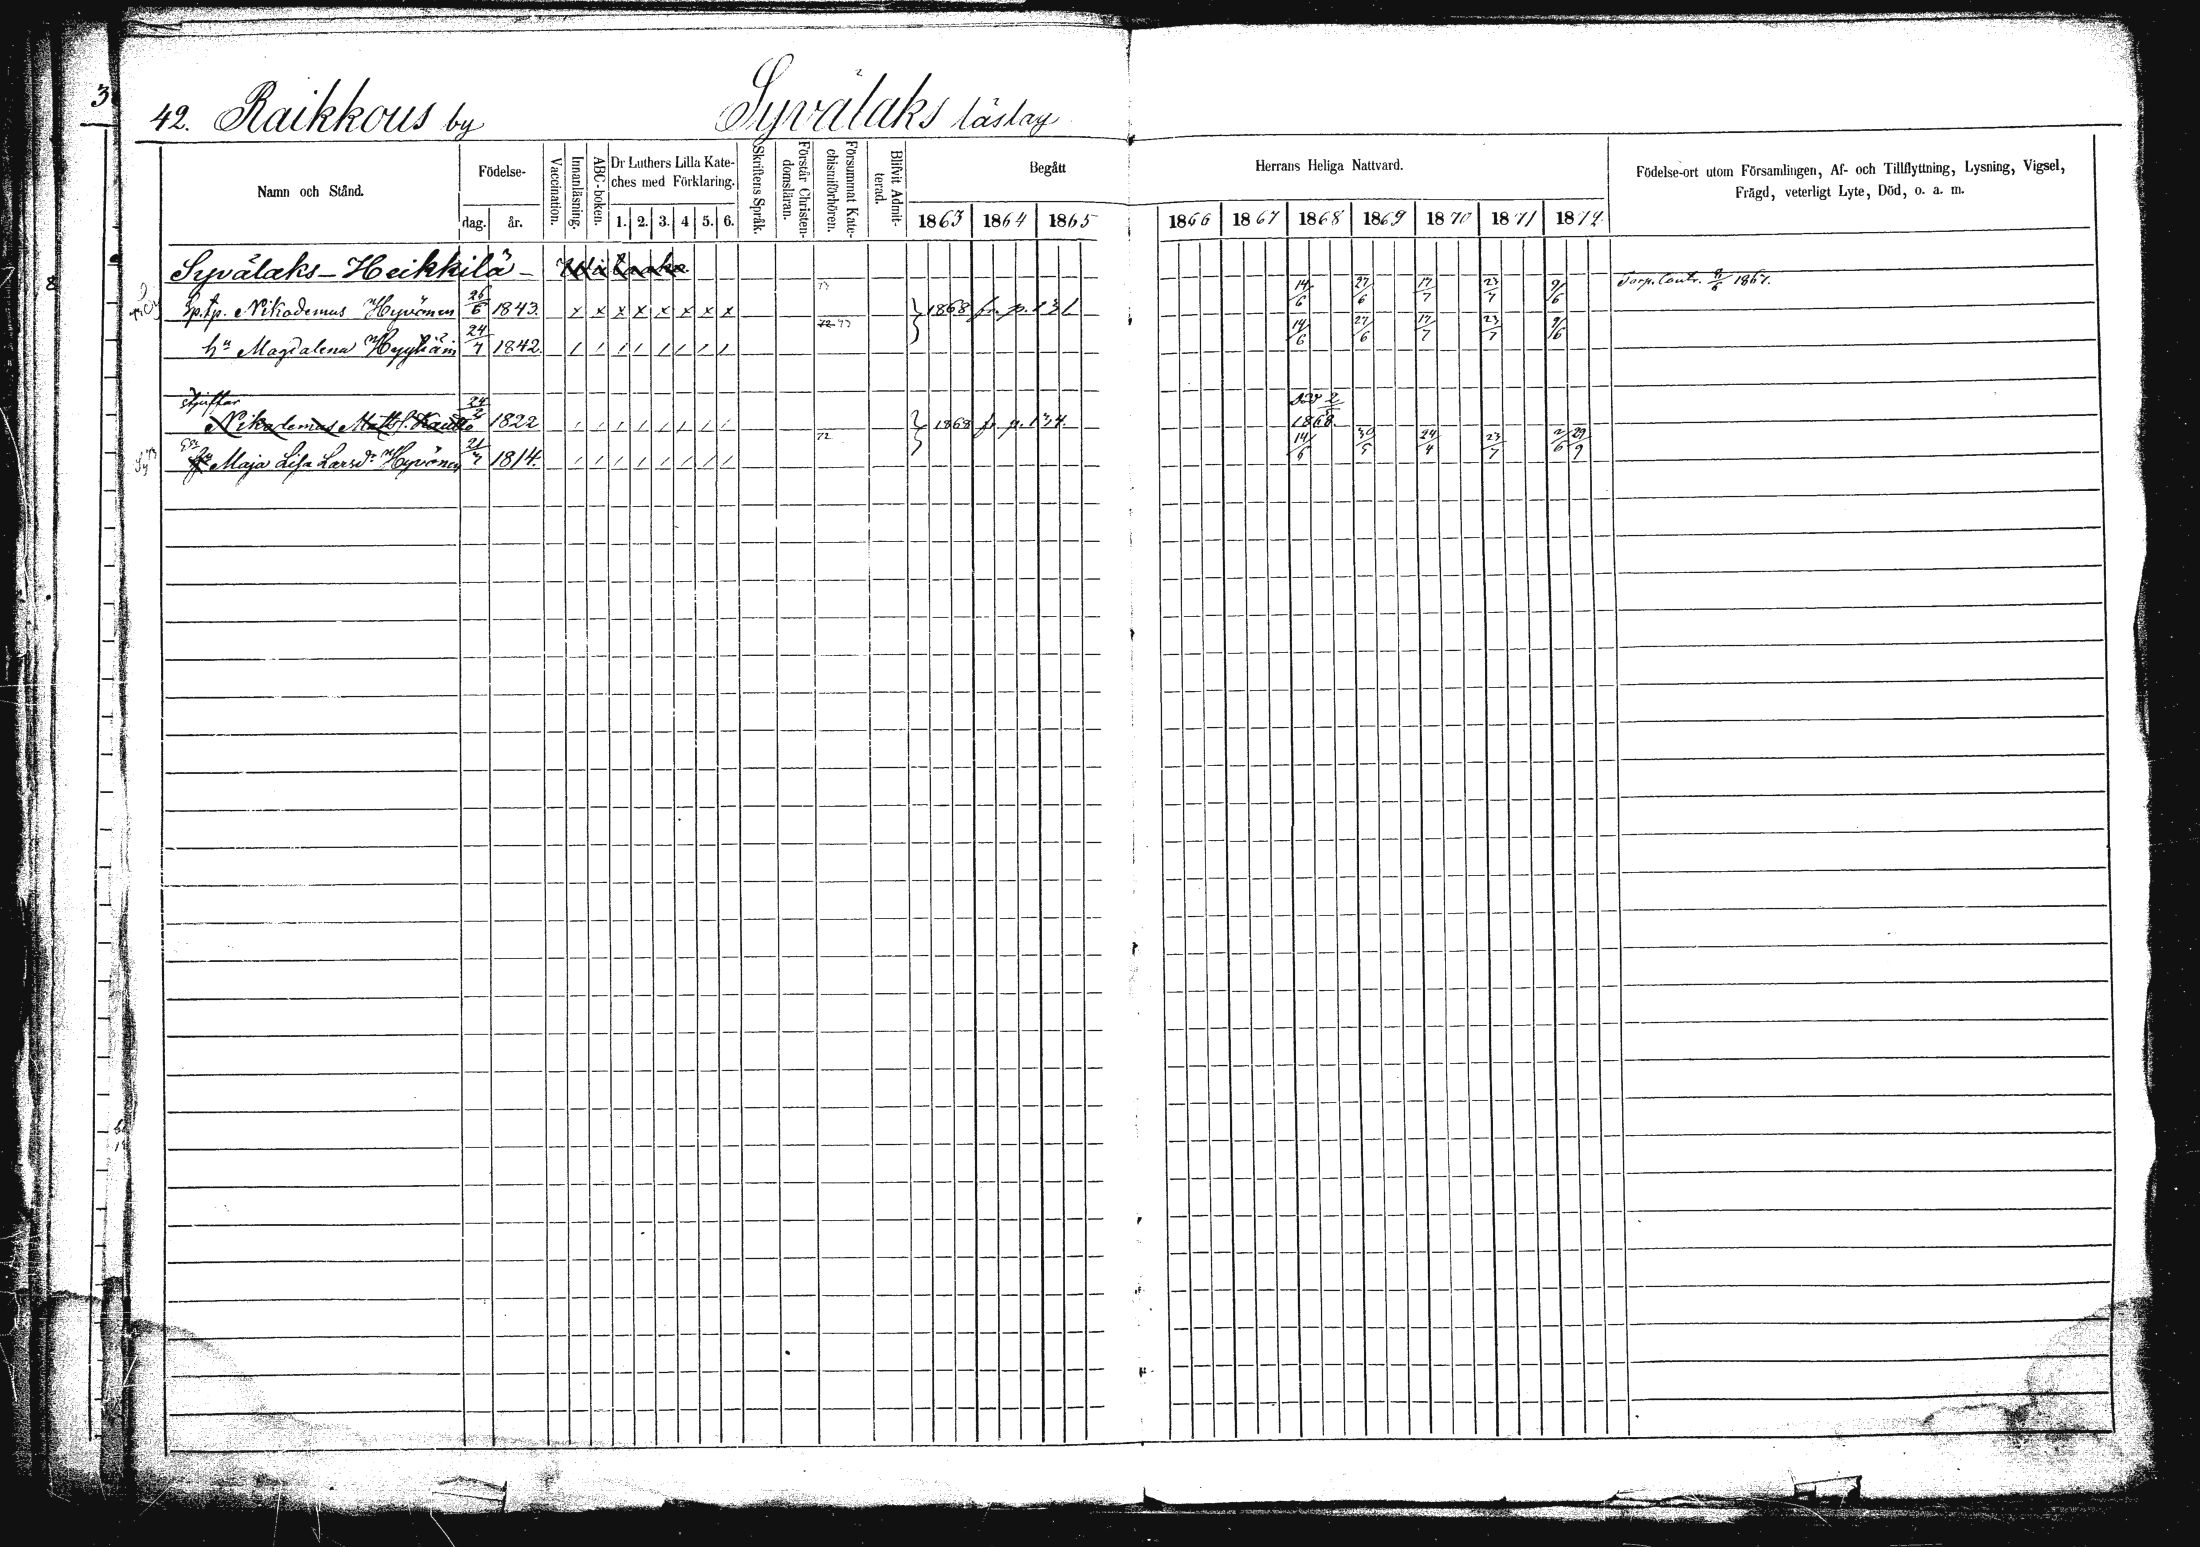 42. Raikkous by Syvälaks läslag
Namn och Stånd.
Födelse-
dag.
år.
Vaccination.
Innanläsning.
ABC-boken.
Dr Luthers Lilla Kate-
ches med Förklaring.
1. 2. 3. 4 5. 6.
Skriftens Språk.
Förstår Christen-
domsläran.
Försummat Kate-
chismiförhören.
Blifvit Admit-
terad.
Begått
Herrans Heliga Nattvard.
1863 1864 1865
1866 1867 1868 1869 1870 1871 1872
Födelse-ort utom Församlingen, Af- och Tillflyttning, Lysning, Vigsel,
Frägd, veterligt Lyte, Död, o. a. m.
Syvälaks-Heikkilä-
73 14/6 27/6 17/7 23/7 9/6 Torp. Contr. 1867.
Nikodemus Hyvönen 26/6 1843. x x x x x x x x } 1868 fr. p. 131
72 73 14/6 27/6 17/7 23/7 9/6
hu Magdalena 24/7 1842.
Nikodemus Matts. 24/2 1822 } 1868 fr. p. 134. död 2 1868
72 14/6 30/5 24/4 23/7 2/6 29/9
Maja Lisa Larsdr Hyvönen 21/7 1814.